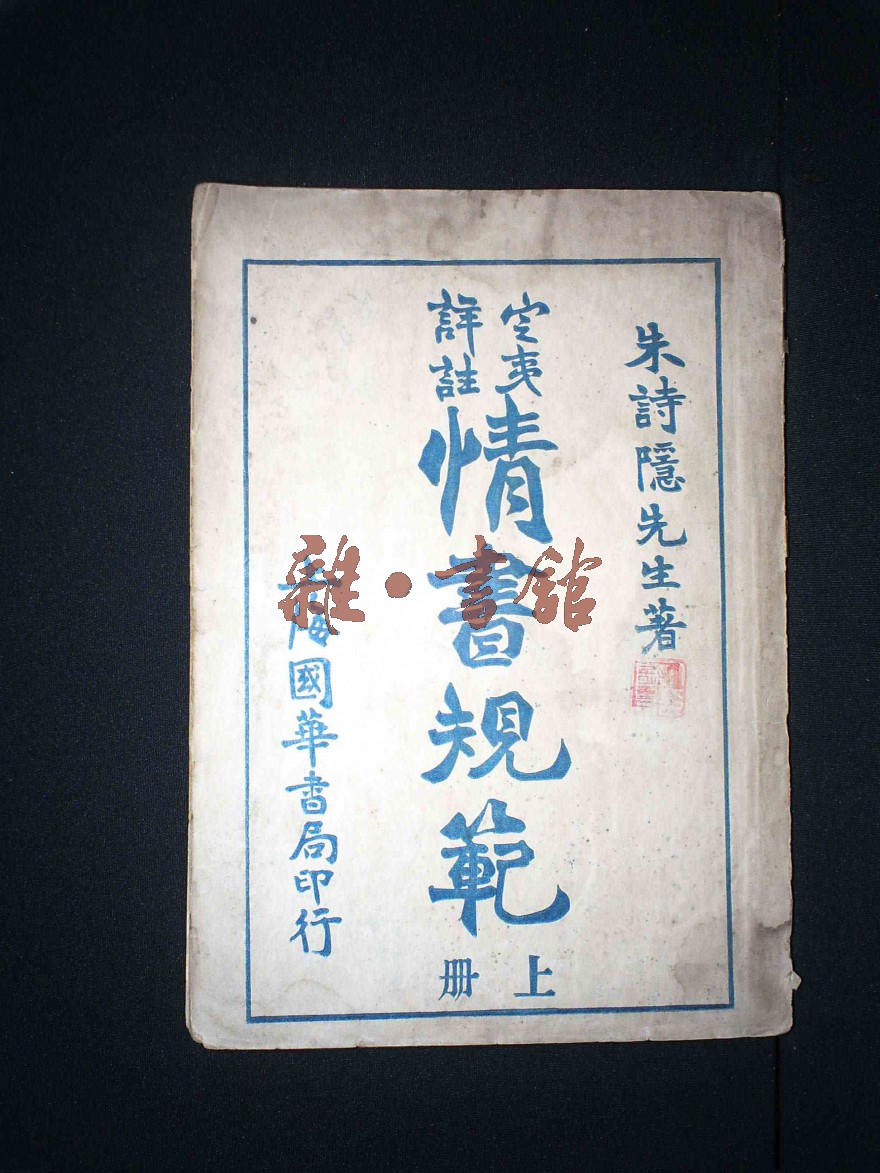 朱詩隱先生著
定夷
詳註
情書規範
上册
上海國華書局印行
雜·書館